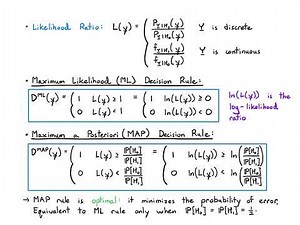 • Likelihood Ratio: L(y) = { P_{Y|H₁}(y) / P_{Y|H₀}(y)  Y is discrete
f_{Y|H₁}(y) / f_{Y|H₀}(y)  Y is continuous
• Maximum Likelihood (ML) Decision Rule:
D^{ML}(y) = { 1  L(y) ≥ 1 = { 1  ln(L(y)) ≥ 0
0  L(y) < 1   0  ln(L(y)) < 0
ln(L(y)) is the
log-likelihood
ratio
• Maximum a Posteriori (MAP) Decision Rule:
D^{MAP}(y) = { 1  L(y) ≥ P[H₀]/P[H₁] = { 1  ln(L(y)) ≥ ln(P[H₀]/P[H₁])
0  L(y) < P[H₀]/P[H₁]   0  ln(L(y)) < ln(P[H₀]/P[H₁])
→ MAP rule is optimal: it minimizes the probability of error.
Equivalent to ML rule only when P[H₀] = P[H₁] = 1/2.